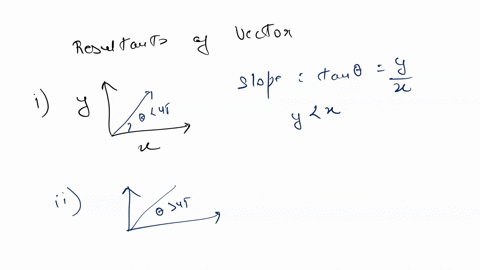 Resultants of Vector
i) y θ < 45 x
slope : tanθ = y/x
y < x
ii) θ > 45